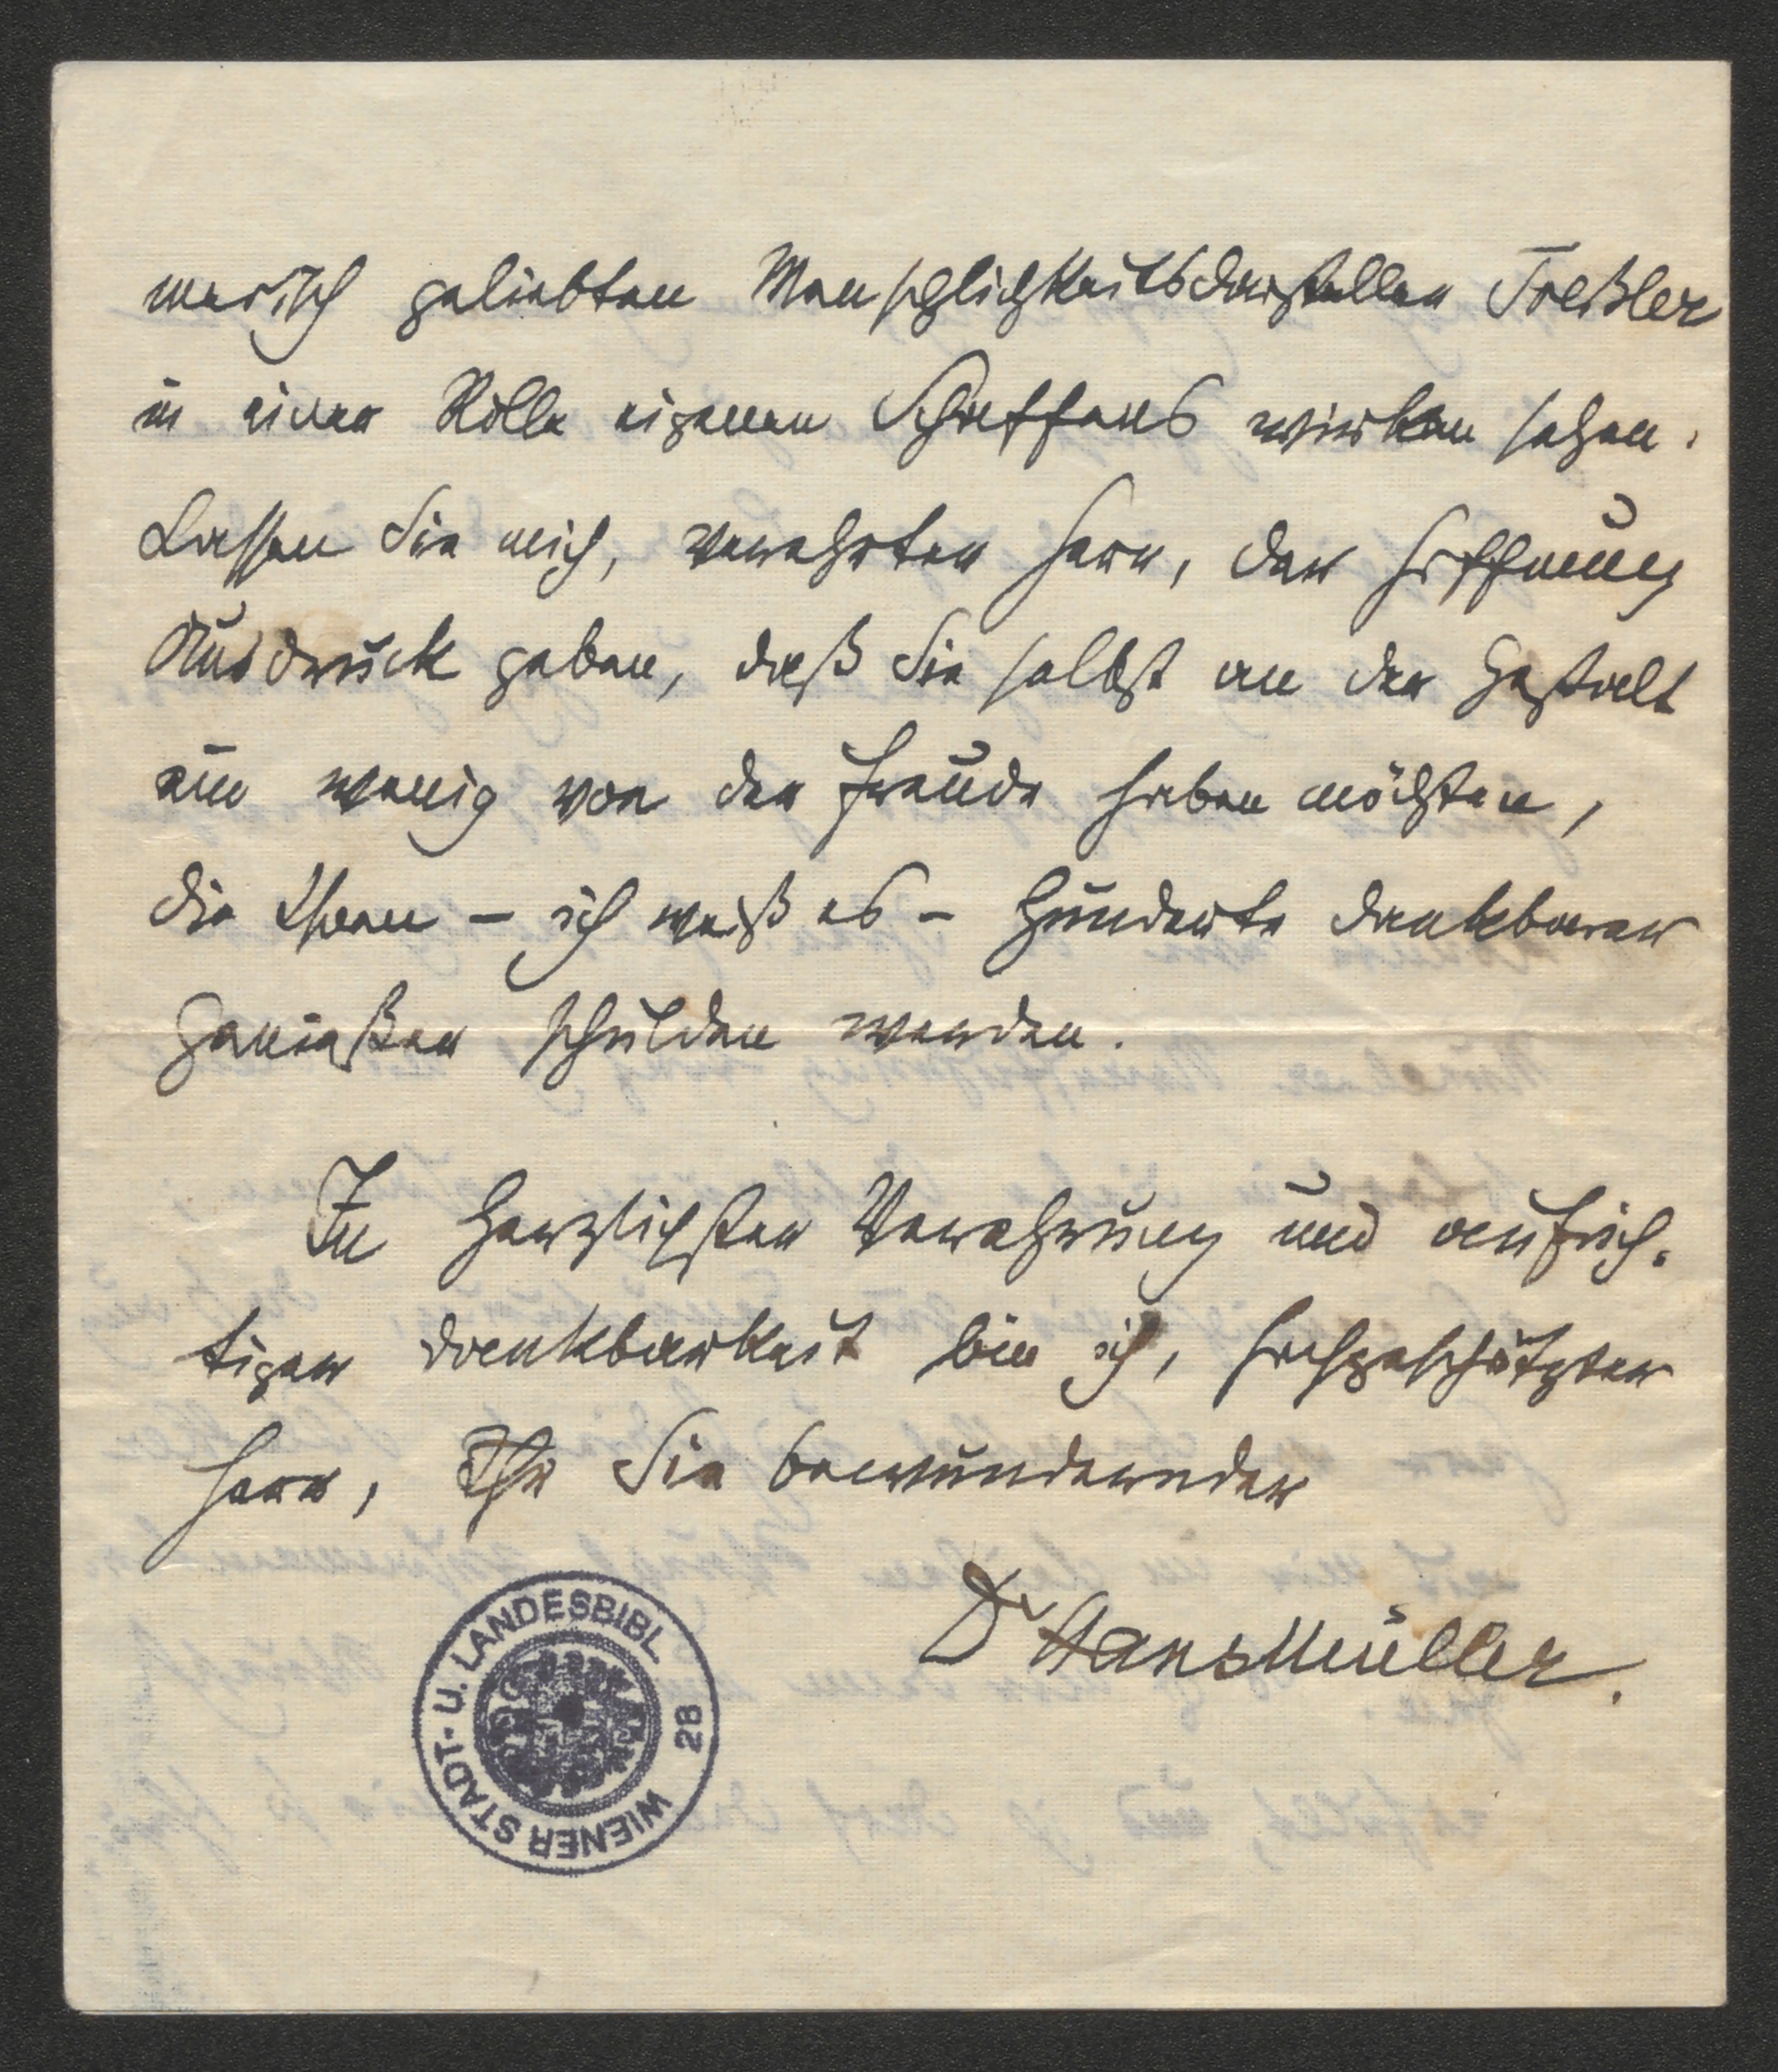 merisch geliebten Menschlichkeitsdarsteller Treßler
in einer Rolle eigenen Schaffens wirken sehen.
Lassen Sie mich, verehrter Herr, der Hoffnung
Ausdruck geben, daß Sie selbst an der Gestalt
ein wenig von der Freude haben möchten,
die Ihnen – ich weiß es – Hunderte dankbarer
Genießer schulden werden.
In herzlichster Verehrung und aufrich-
tiger Dankbarkeit bin ich, hochgeschätzter
Herr, Ihr Sie bewundernder
Dr Hans Müller.
WIENER STADT- U. LANDESBIBL
28